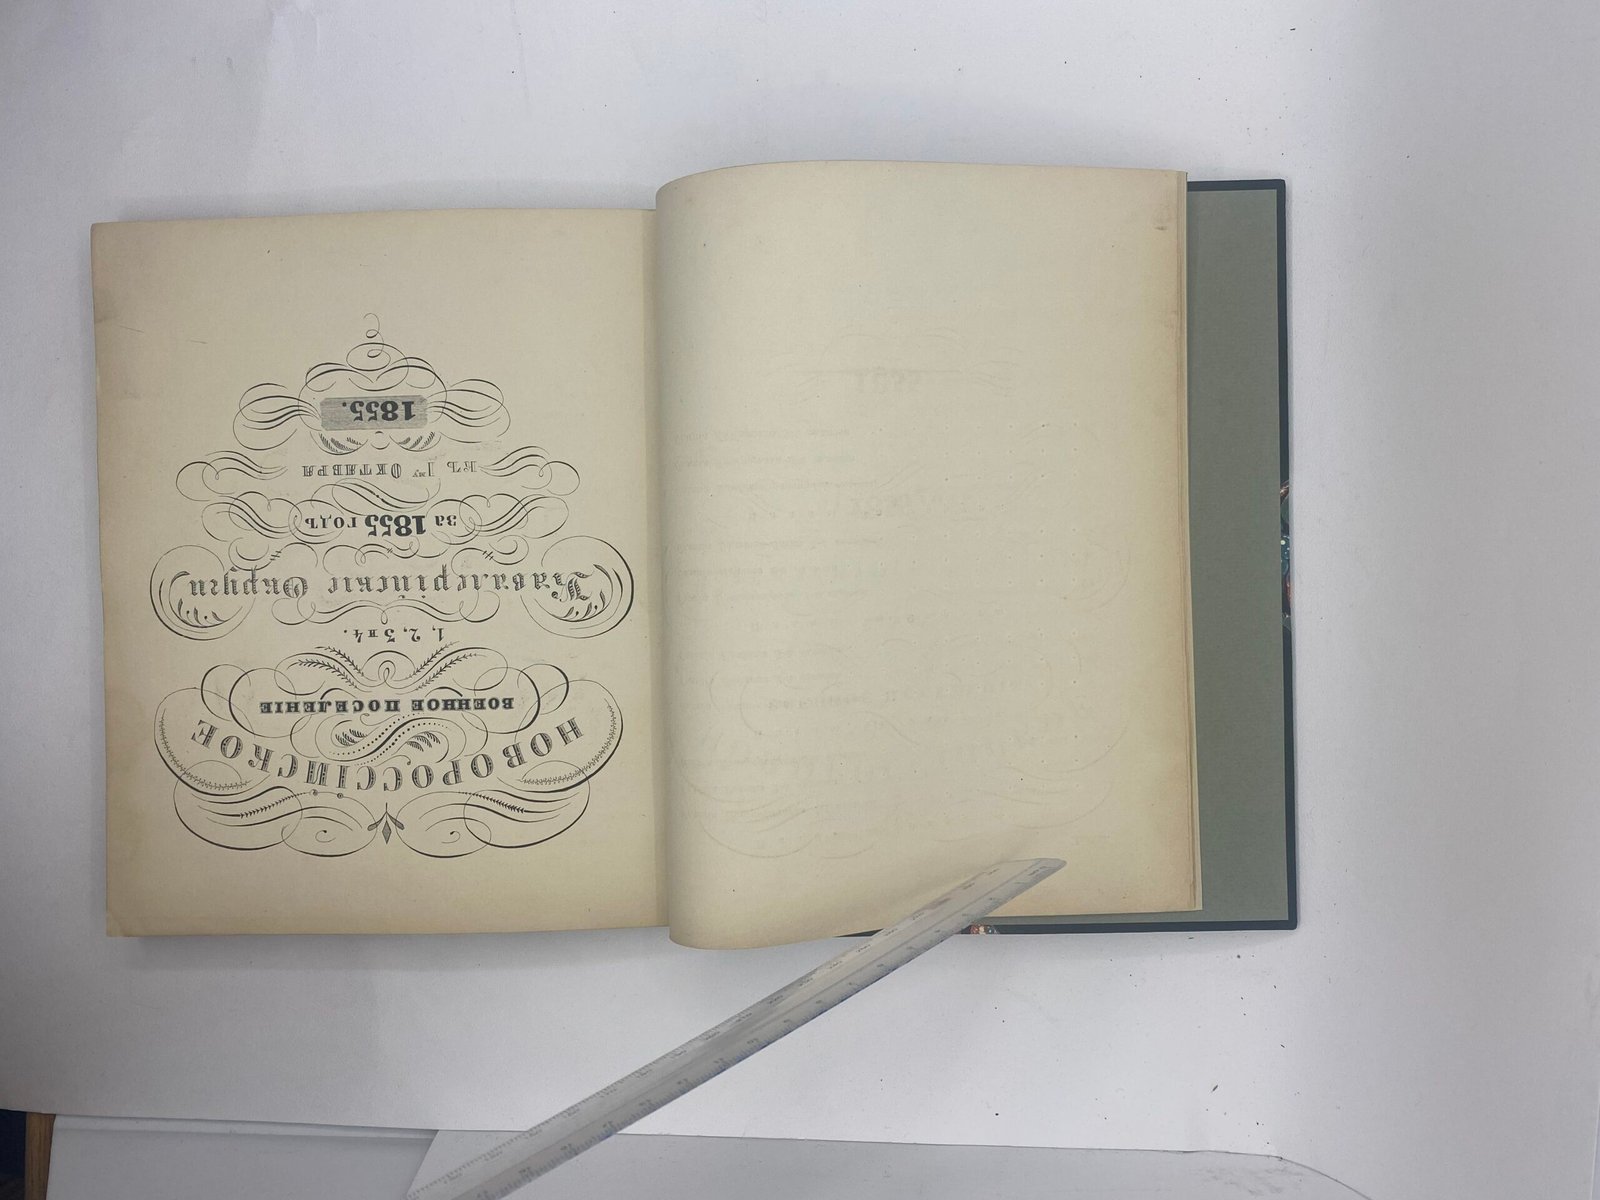 НОВОРОССІЙСКОЕ
ВОЕННОЕ ПОСЕЛЕНІЕ
1, 2, 3 и 4.
Кавалерійскіе Округи
за 1855 годъ
къ 1му Октября
1855.